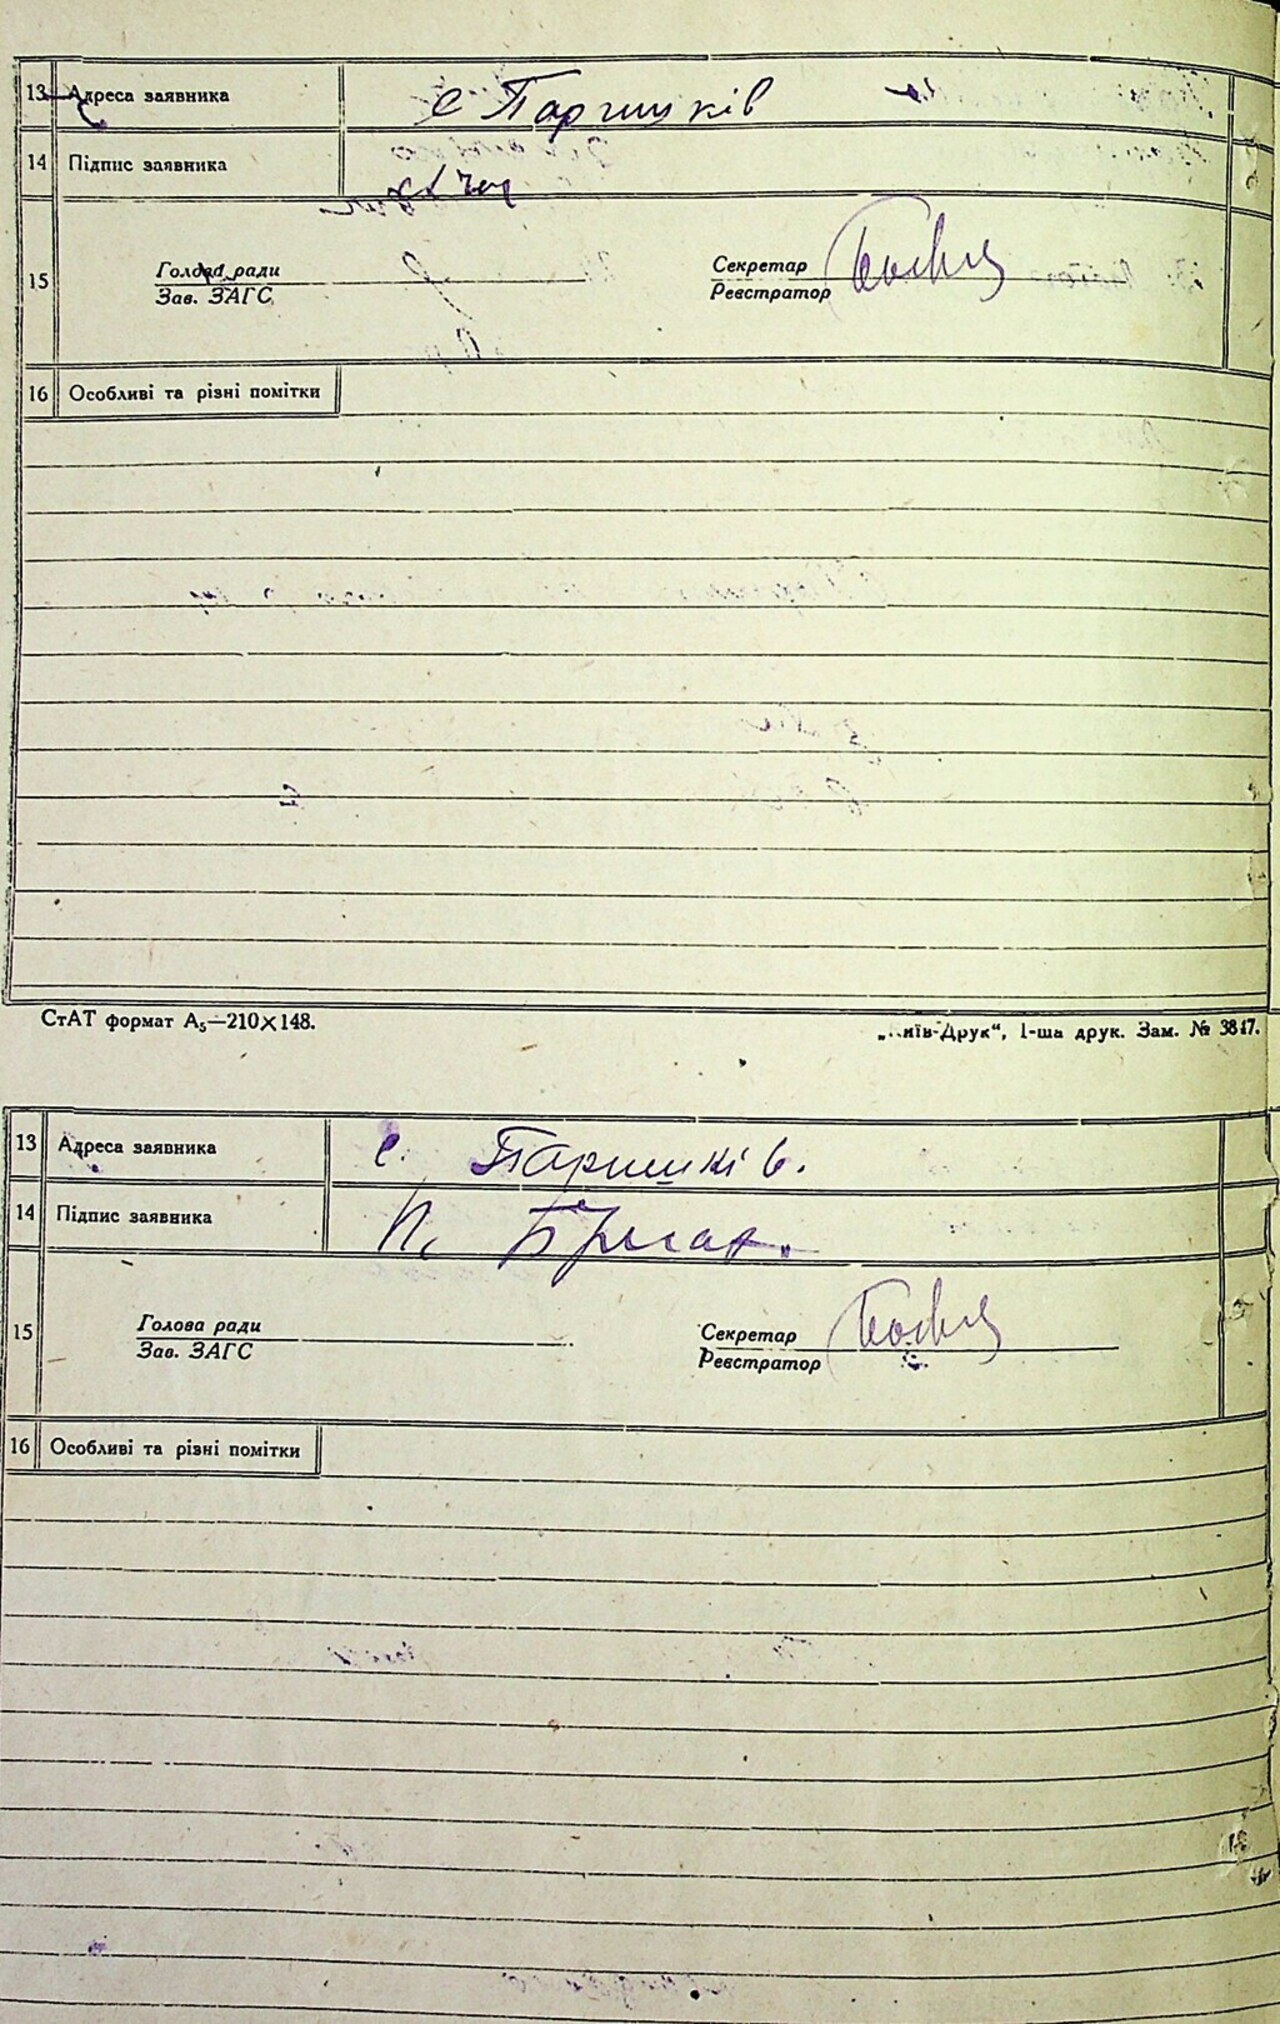 13 Адреса заявника с Паришків
14 Підпис заявника
15 Голова ради Секретар
Зав. ЗАГС Реєстратор
16 Особливі та різні помітки
СтАТ формат А₅—210×148. „Київ-Друк“, 1-ша друк. Зам. № 3817.
13 Адреса заявника с. Паришків.
14 Підпис заявника П.
15 Голова ради Секретар
Зав. ЗАГС Реєстратор
16 Особливі та різні помітки